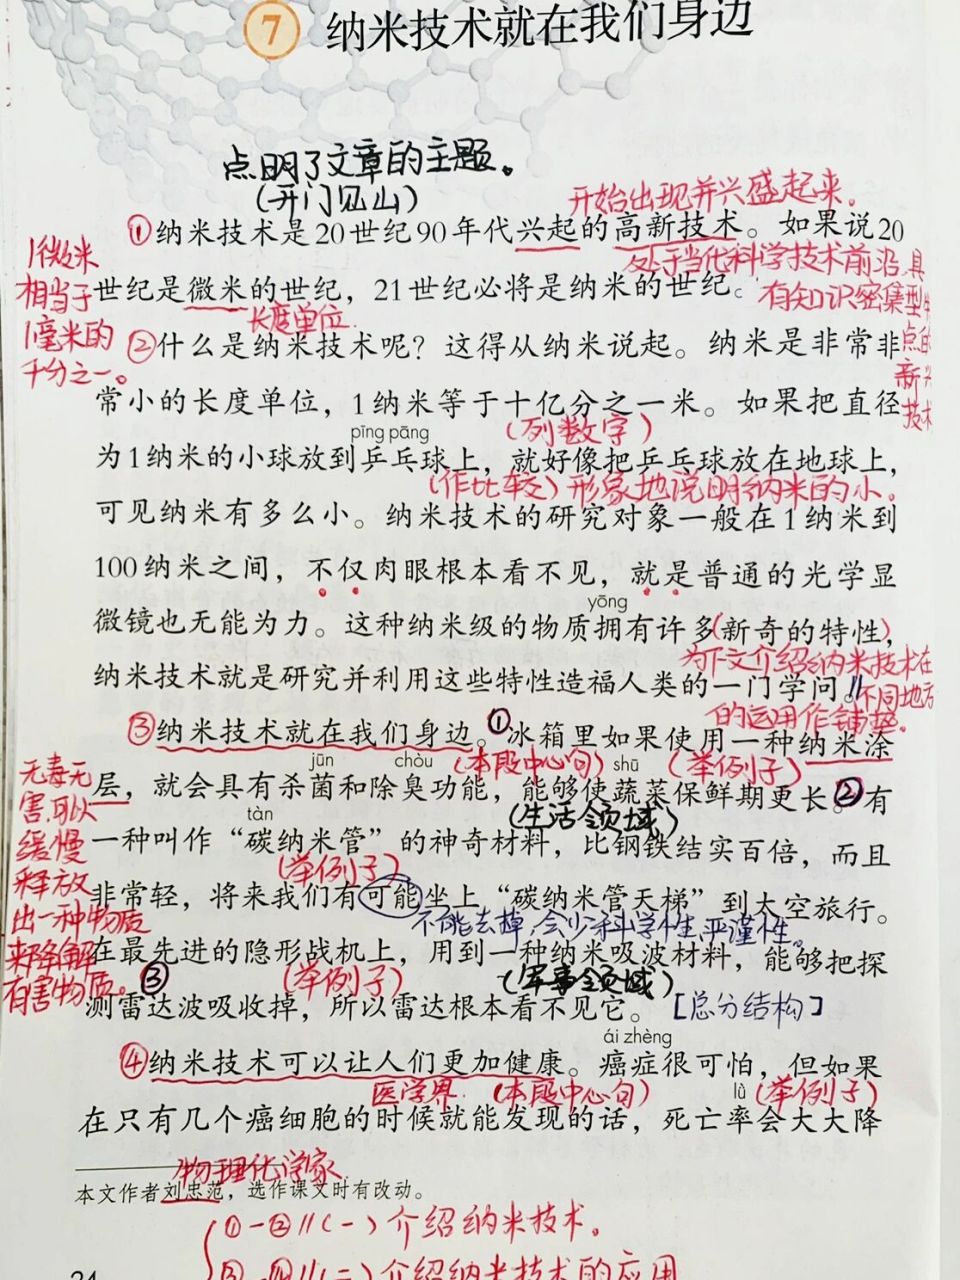 7 纳米技术就在我们身边
点明了文章的主题。
(开门见山)
开始出现并兴盛起来。
①纳米技术是20世纪90年代兴起的高新技术。如果说20
处于当代科学技术前沿,具
有知识密集型特
点的
新兴
技术
1微米
相当于
1毫米的
千分之一。
世纪是微米的世纪，21世纪必将是纳米的世纪。
长度单位
②什么是纳米技术呢？这得从纳米说起。纳米是非常非
常小的长度单位，1纳米等于十亿分之一米。如果把直径
(列数字)
pīng pāng
为1纳米的小球放到乒乓球上，就好像把乒乓球放在地球上，
(作比较)形象地说明纳米的小。
可见纳米有多么小。纳米技术的研究对象一般在1纳米到
100纳米之间，不仅肉眼根本看不见，就是普通的光学显
yōng
微镜也无能为力。这种纳米级的物质拥有许多新奇的特性，
为下文介绍纳米技术在
不同地方
的运用作铺垫。
纳米技术就是研究并利用这些特性造福人类的一门学问。
③纳米技术就在我们身边。①冰箱里如果使用一种纳米涂
(本段中心句) (举例子)
jūn chòu shū
层，就会具有杀菌和除臭功能，能够使蔬菜保鲜期更长。②有
(生活领域)
无毒无
害,可以
缓慢
释放
出一种物质
来降解
有害物质。
tàn
一种叫作“碳纳米管”的神奇材料，比钢铁结实百倍，而且
(举例子)
非常轻，将来我们有可能坐上“碳纳米管天梯”到太空旅行。
不能去掉,会少了科学性,严谨性。
③在最先进的隐形战机上，用到一种纳米吸波材料，能够把探
(举例子) (军事领域)
测雷达波吸收掉，所以雷达根本看不见它。[总分结构]
ái zhèng
④纳米技术可以让人们更加健康。癌症很可怕，但如果
医学界 (本段中心句) (举例子)
lǜ
在只有几个癌细胞的时候就能发现的话，死亡率会大大降
物理化学家
本文作者刘忠范，选作课文时有改动。
①-②//(一)介绍纳米技术。
③-④//(二)介绍纳米技术的应用
24